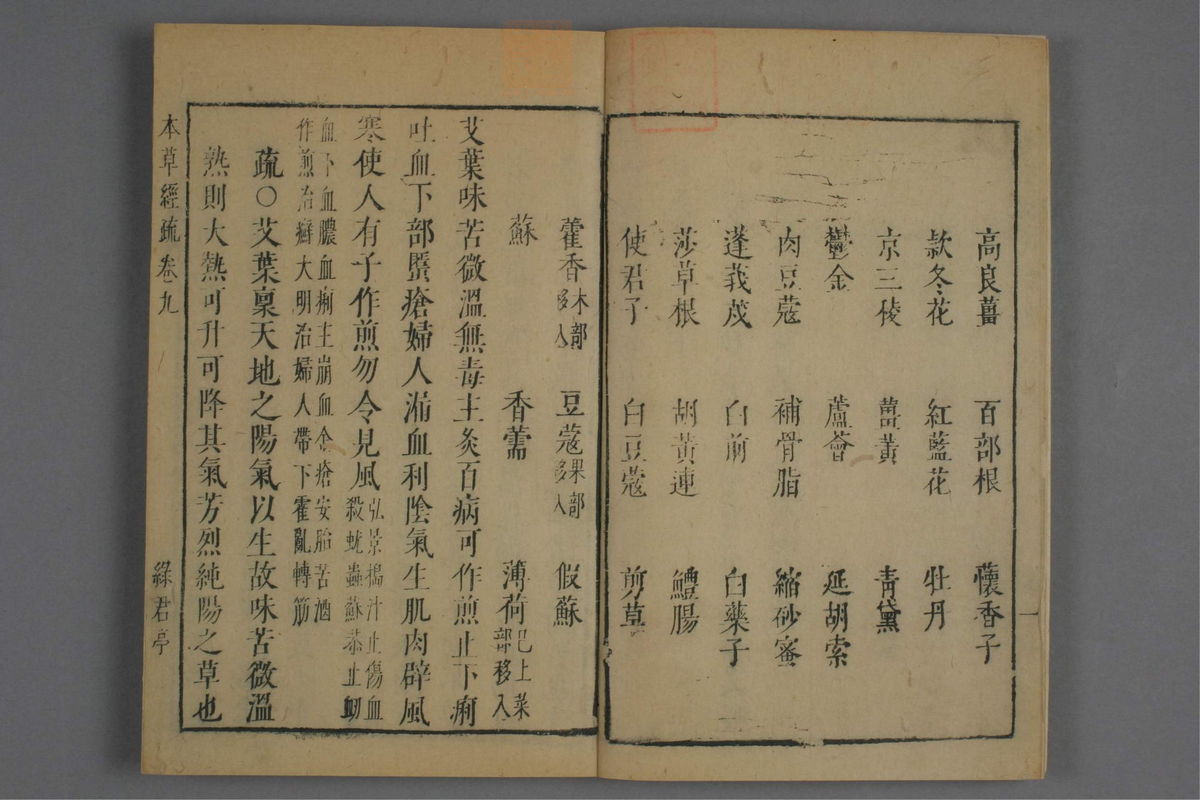 高良薑 百部根 蘹香子
款冬花 紅藍花 牡丹
京三稜 薑黃 靑黛
鬱金 蘆薈 延胡索
肉豆蔻 補骨脂 縮砂蜜
蓬莪茂 白前 白藥子
莎草根 胡黃連 鱧腸
使君子 白豆蔻 剪草
一
藿香木部移入 豆蔻果部移入 假蘇
蘇 香薷 薄荷已上菜部移入
艾葉味苦微溫無毒主灸百病可作煎止下痢
吐血下部䘌瘡婦人漏血利陰氣生肌肉辟風
寒使人有子作煎勿令見風弘景搗汁止傷血殺蛔蟲蘇恭止衂
血下血膿血痢主崩血金瘡安胎苦酒
作煎治癬大明治婦人帶下霍亂轉筋
疏○艾葉稟天地之陽氣以生故味苦微溫
熟則大熱可升可降其氣芳烈純陽之草也
本草經疏卷九
綠君亭